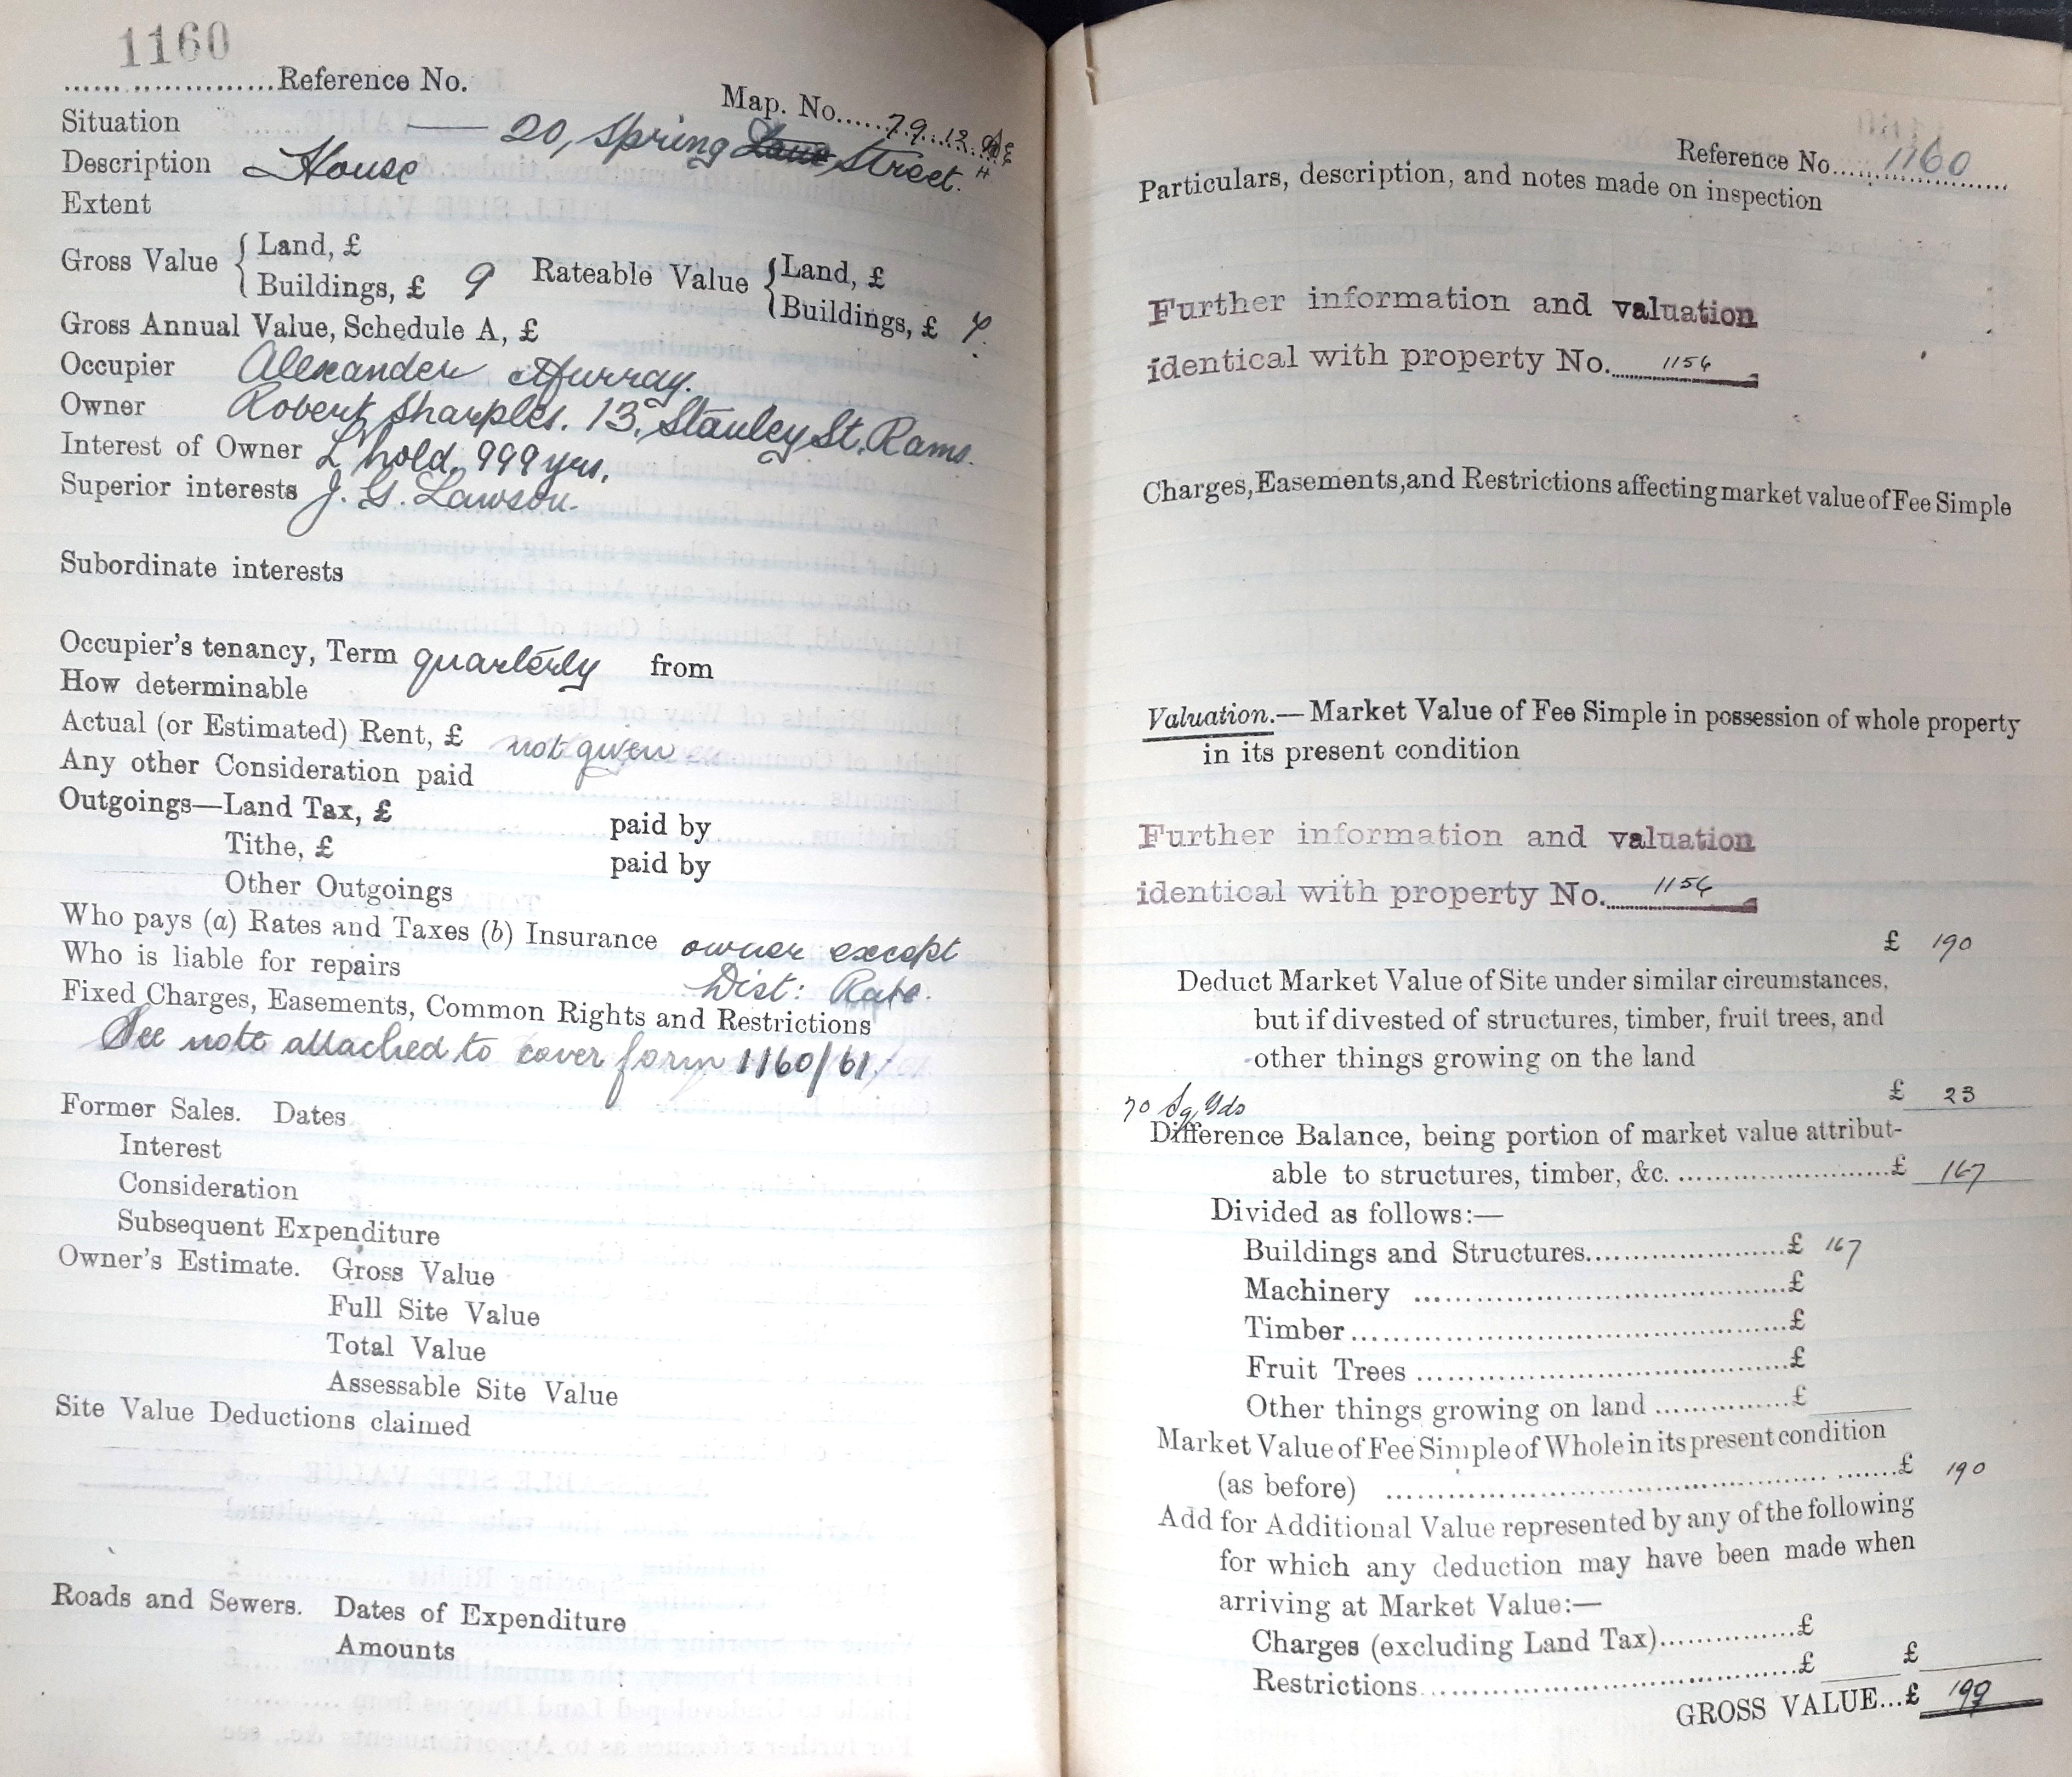 1160
.....................Reference No.
Map. No.....79.12
Situation — 20, Spring Lane Street.
Description House
Extent
Gross Value { Land, £
Buildings, £ 9
Rateable Value { Land, £
Buildings, £ 7.
Gross Annual Value, Schedule A, £
Occupier Alexander Murray.
Owner Robert Sharples. 13, Stanley St, Rams.
Interest of Owner L'hold, 999 yrs,
Superior interests J. G. Lawson.
Subordinate interests
Occupier's tenancy, Term quarterly from
How determinable
Actual (or Estimated) Rent, £ not given
Any other Consideration paid
Outgoings—Land Tax, £ paid by
Tithe, £ paid by
Other Outgoings
Who pays (a) Rates and Taxes (b) Insurance owner except
Who is liable for repairs Dist: Rate.
Fixed Charges, Easements, Common Rights and Restrictions
See note attached to cover form 1160/61.
Former Sales. Dates
Interest
Consideration
Subsequent Expenditure
Owner's Estimate. Gross Value
Full Site Value
Total Value
Assessable Site Value
Site Value Deductions claimed
Roads and Sewers. Dates of Expenditure
Amounts
Reference No. 1160
Particulars, description, and notes made on inspection
Further information and valuation
identical with property No. 1156
Charges, Easements, and Restrictions affecting market value of Fee Simple
Valuation.—Market Value of Fee Simple in possession of whole property
in its present condition
Further information and valuation
identical with property No. 1156
£ 190
Deduct Market Value of Site under similar circumstances,
but if divested of structures, timber, fruit trees, and
other things growing on the land
70 Sq Yds £ 23
Difference Balance, being portion of market value attribut-
able to structures, timber, &c. ........................£ 167
Divided as follows:—
Buildings and Structures........................£ 167
Machinery ........................£
Timber........................£
Fruit Trees ........................£
Other things growing on land ...............£
Market Value of Fee Simple of Whole in its present condition
(as before) ........................£ 190
Add for Additional Value represented by any of the following
for which any deduction may have been made when
arriving at Market Value:—
Charges (excluding Land Tax)...............£
Restrictions........................£ £
GROSS VALUE...£ 190